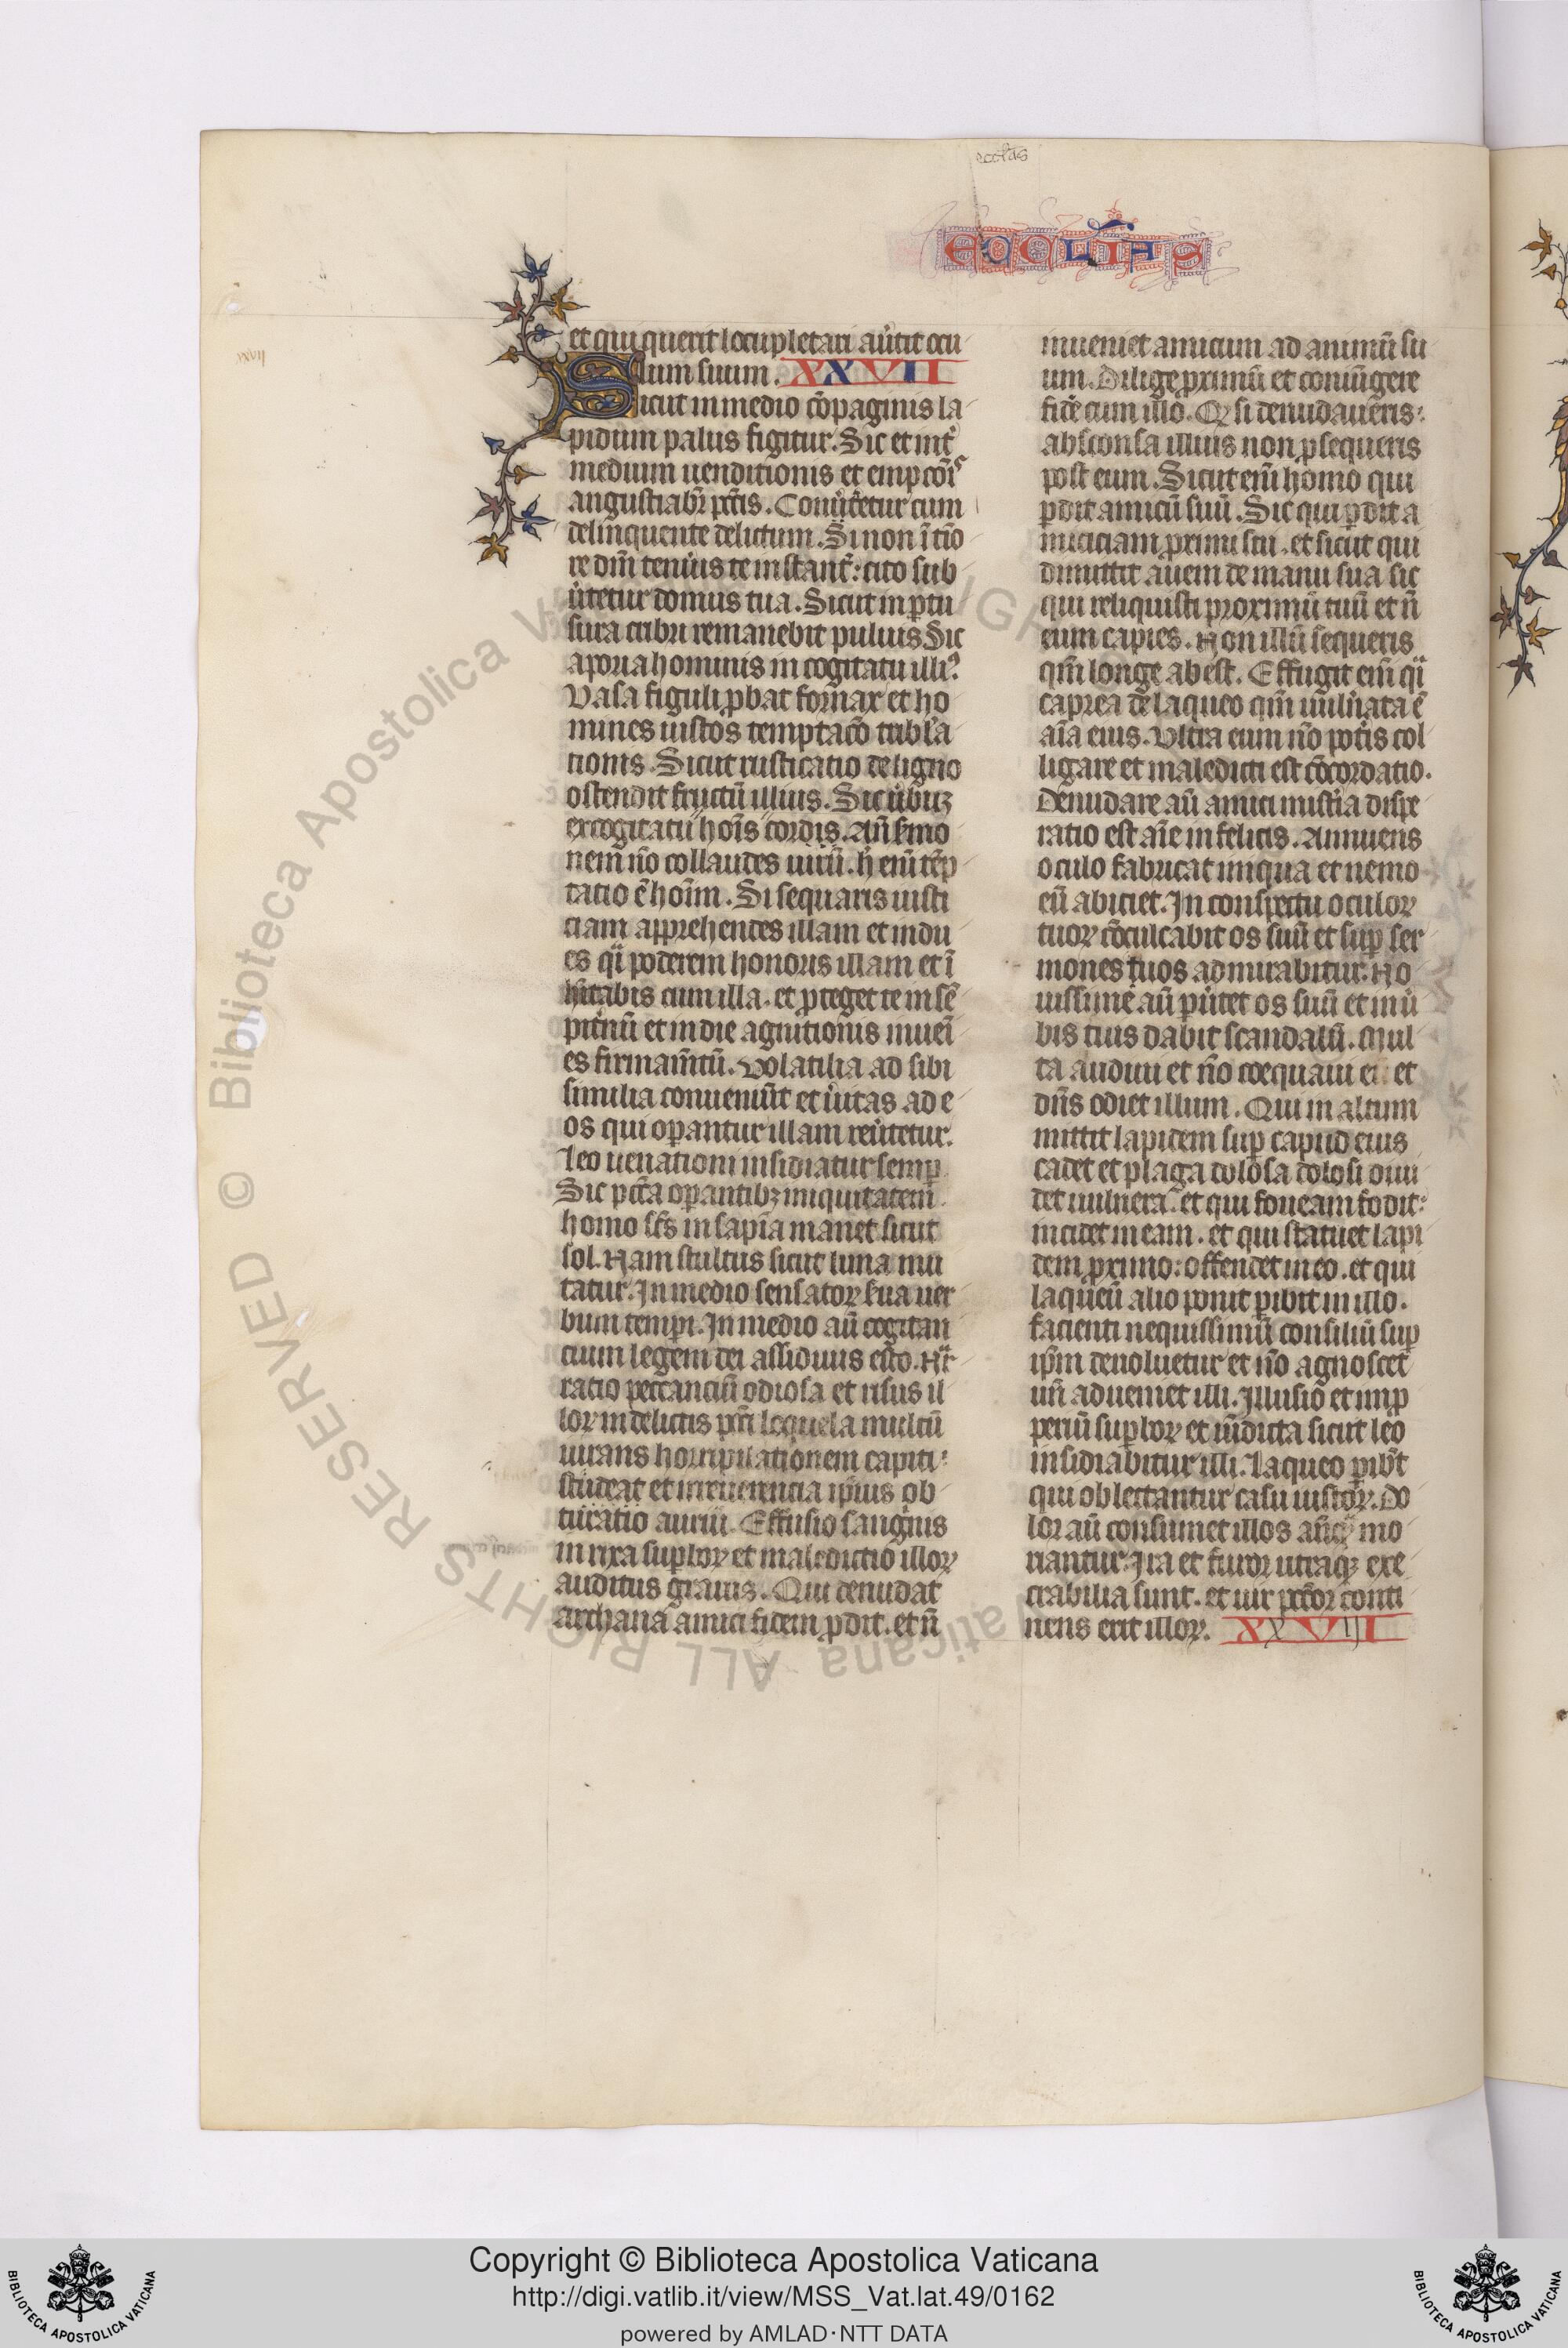 eccl'as
ECCL'IAS
xxvii
et qui querit locupletari au̾tit ocu
lum suum. XXVII
Sicut in medio co̅paginis la
pidum palus figitur. Sic et int̾
medium uenditionis et empco̅is
angustiab̾r pctis. Conu̾tetur cum
delinquente delictum. Si non i̅ tio̅
re dn̅i tenu̾is te instant̾: cito sub
u̾tetur domus tua. Sicut in p̱tu
sura cribri remanebit puluis Sic
aporia hominis in cogitatu illiꝰ.
Vasa figuli ꝓbat fornax et ho
mines iustos temptaco̅ tribl'a
tionis. Sicut rusticatio de ligno
ostendit fructu̅ illius. Sic u̾buꝫ
excogitatu ho̅is cordis. An̅ s̾mo
nem no̅ collaudes uiru̅. h̾ eni̅ te̅p
tatio e̅ hoi̅m. Si sequaris iusti
ciam apprehendes illam et indu
es q̾i poderem honoris illam et i̅
h̾itabis cum illa. et ꝓteget te in se̅
pit̾nu̅ et in die agnitionis inuei̅
es firmam̅tu̅. Volatilia ad sibi
similia conueniu̅t et u̾itas ad e
os qui op̱antur illam reu̾tetur.
Leo uenationi insidiatur semp̱
Sic pcc̅a op̱antibꝫ iniquitatem.
homo sc̅s in sapi̅a manet sicut
sol. Nam stultus sicut luna mu
tatur. In medio sensatoꝝ s̾ua uer
bum tempi̱. In medio au̅ cogitan
cium legem dei assiduus esto. Nar
ratio peccanciu̅ odiosa et risus il
loꝝ in delictis pcc̅i loquela multu̅
iurans horripilationem capiti
studeat et inreuerencia ip̅ius ob
turatio auriu̅. Effusio sang̾inis
in rixa sup̱boꝝ et maledictio illoꝝ
auditus grauis. Qui denudat
archana amici fidem p̱dit. et n̅
inueniet amicum ad animu̅ su
um. Dilige ꝓximu̅ et coniu̅gere
fide cum illo. Qꝫ si denudau̾eris:
absconsa illius non ꝑsequeris
post eum. Sicut eni̅ homo qui
p̱dit amicu̅ suu̅. Sic qui p̱dit a
miciciam ꝓximi sui. et sicut qui
dimittit auem de manu sua sic
qui reliquisti proximu̅ tuu̅ et n̅
eum capies. Non illu̅ sequeris
qm̅ longe abest. Effugit eni̅ q̾i
caprea de laqueo qm̅ uuln̾ata e̅
ai̅a eius. Vltra eum no̅ pot̾is col
ligare et maledicti est co̅cordatio.
Denudare au̅ amici mist̾ia dispe
ratio est ai̅e infelicis. Annuens
oculo fabricat iniqua et nemo
eu̅ abiciet. In conspectu oculoꝝ
tuoꝝ co̅culcabit os suu̅ et sup̱ ser
mones tuos admirabitur. No
uissime au̅ p̱u̾tet os suu̅ et in u̾
bis tuis dabit scandalu̅. Mul
ta audiui et no̅ coequaui ei et
dn̅s odiet illum. Qui in altum
mittit lapidem sup̱ capud eius
cadet et plaga dolosa dolosi diui
det uulnera. et qui foueam fodit:
incidet in eam. et qui statuet lapi
dem ꝓximo: offendet in eo. et qui
laqueu̅ alio ponit p̱ibit in illo.
facienti nequissimu̅ consiliu̅ sup̱
ip̅m deuoluetur et no̅ agnoscet
un̅ adueniet illi. Illusio et imp̱
periu̅ sup̱boꝝ et ui̅dicta sicut leo
insidiabitur illi. Laqueo p̱ibu̅t
qui oblectantur casu iustoꝝ. Do
lor au̅ consumet illos an̅q̾ mo
riantur. Ira et furor utraqꝫ exe
crabilia sunt. et uir pcc̅or conti
nens erit illoꝝ. XXVIII
Copyright © Biblioteca Apostolica Vaticana
http://digi.vatlib.it/view/MSS_Vat.lat.49/0162
powered by AMLAD·NTT DATA
BIBLIOTECA APOSTOLICA VATICANA
BIBLIOTECA APOSTOLICA VATICANA
© Biblioteca Apostolica Vaticana ALL RIGHTS RESERVED